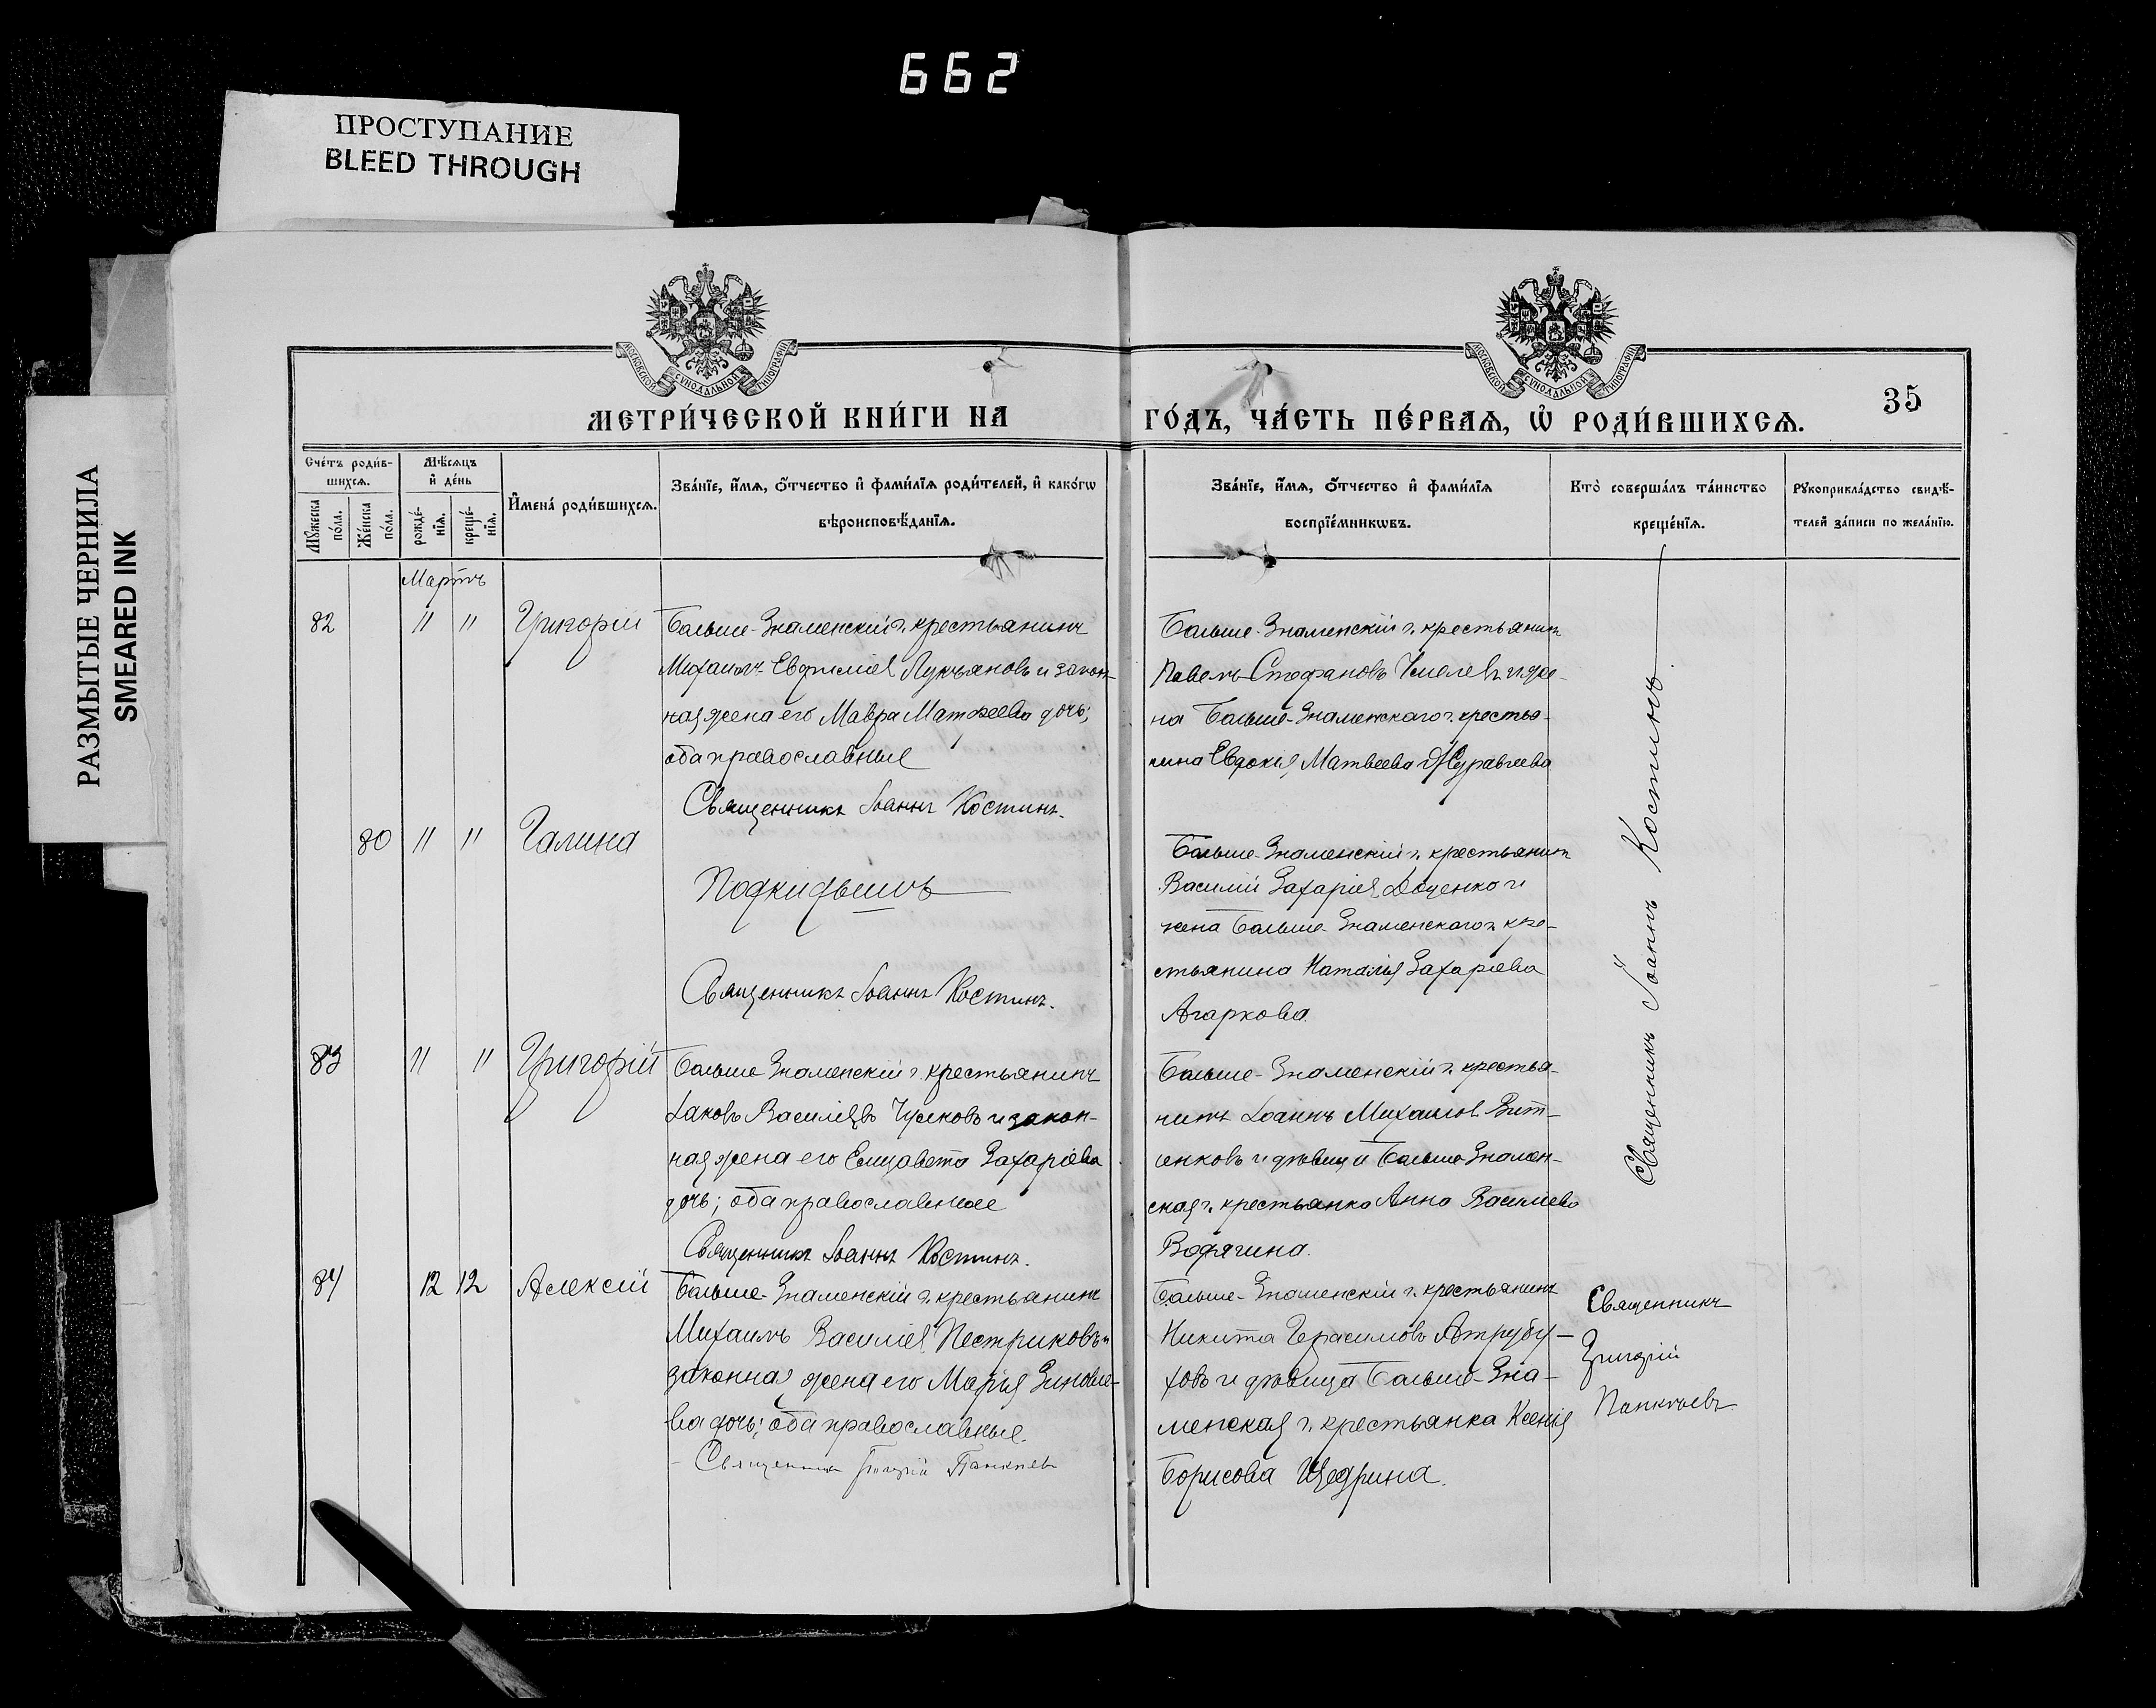 662
ПРОСТУПАНИЕ
BLEED THROUGH
РАЗМЫТЫЕ ЧЕРНИЛА
SMEARED INK
МОСКОВСКОЙ СѴНОДАЛЬНОЙ ТИПОГРАФІИ
МОСКОВСКОЙ СѴНОДАЛЬНОЙ ТИПОГРАФІИ
35
МЕТРИ́ЧЕСКОЙ КНИ́ГИ НА ГО́ДЪ, ЧА́СТЬ ПЕ́РВАѦ, Ѡ҆ РОДИ́ВШИХСѦ.
Сче́тъ роди́в-
шихсѧ.
Мѣ́сѧцъ
и҆ де́нь
Мꙋ́жеска
по́ла.
Же́нска
по́ла.
рожде́-
нїѧ.
креще́-
нїѧ.
И҆мена̀ роди́вшихсѧ.
Зва́нїе, и҆́мѧ, ѻ҆́тчество и҆ фами́лїѧ роди́телей, и҆ како́гѡ
вѣроисповѣ́данїѧ.
Зва́нїе, и҆́мѧ, ѻ҆́тчество и҆ фами́лїѧ
воспрїе́мникѡвъ.
Кто̀ соверша́лъ та́инство
креще́нїѧ.
Рꙋкоприкла́дство свидѣ́-
телей за́писи по жела́нїю.
Мартъ
82 11 11 Григорій
Больше-Знаменскій г. крестьянинъ
Михаилъ Евфиміев Лукьяновъ и закон-
ная жена его Мавра Матфеева дочь;
оба православные
Священникъ Іоаннъ Костинъ.
Больше-Знаменскій г. крестьянин
Павелъ Стефановъ и же-
на Больше-Знаменскаго г. крестья-
нина Евдокія Матвеева Журавлева
80 11 11 Галина
Подкидышъ
Священникъ Іоаннъ Костинъ.
Больше-Знаменскій г. крестьянин
Василій Захаріев Доценко и
жена Больше-Знаменскаго г. кре-
стьянина Наталья Захаріева
Агаркова.
83 11 11 Григорій
Больше Знаменскій г. крестьянинъ
Іаковъ Василіевъ Чуйковъ и закон-
ная жена его Елизавета Захаріева
дочь; оба православные
Священникъ Іоаннъ Костинъ.
Больше-Знаменскій г. крестья-
нинъ Іоаннъ Михаилов Вит-
енковъ и девица Больше Знамен-
ская г. крестьянка Анна Василиева
Водягина.
Священникъ Іоаннъ Костинъ
84 12 12 Алексій
Больше-Знаменскій г. крестьянинъ
Михаилъ Василіев Пестриковъ и
законная жена его Марія Зиновие-
ва дочь; оба православные.
Священник Григорій Панкеев
Больше-Знаменскій г. крестьянинъ
Никита Герасимовъ Атрубу-
ховъ и девица Больше-Зна-
менская г. крестьянка Ксенія
Борисова Щедрина.
Священникъ
Григорій
Панкеевъ